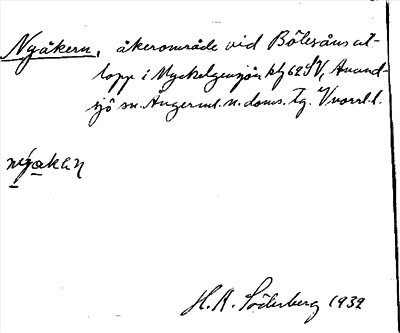 Nyåkern, åkerområde vid Bölesåns ut-
lopp i Myckelgensjön hfg 62 SV, Anund-
sjö sn. Ångerml. n. doms. tg. Vnorrl. l.
nýakən
H. A. Söderberg 1932